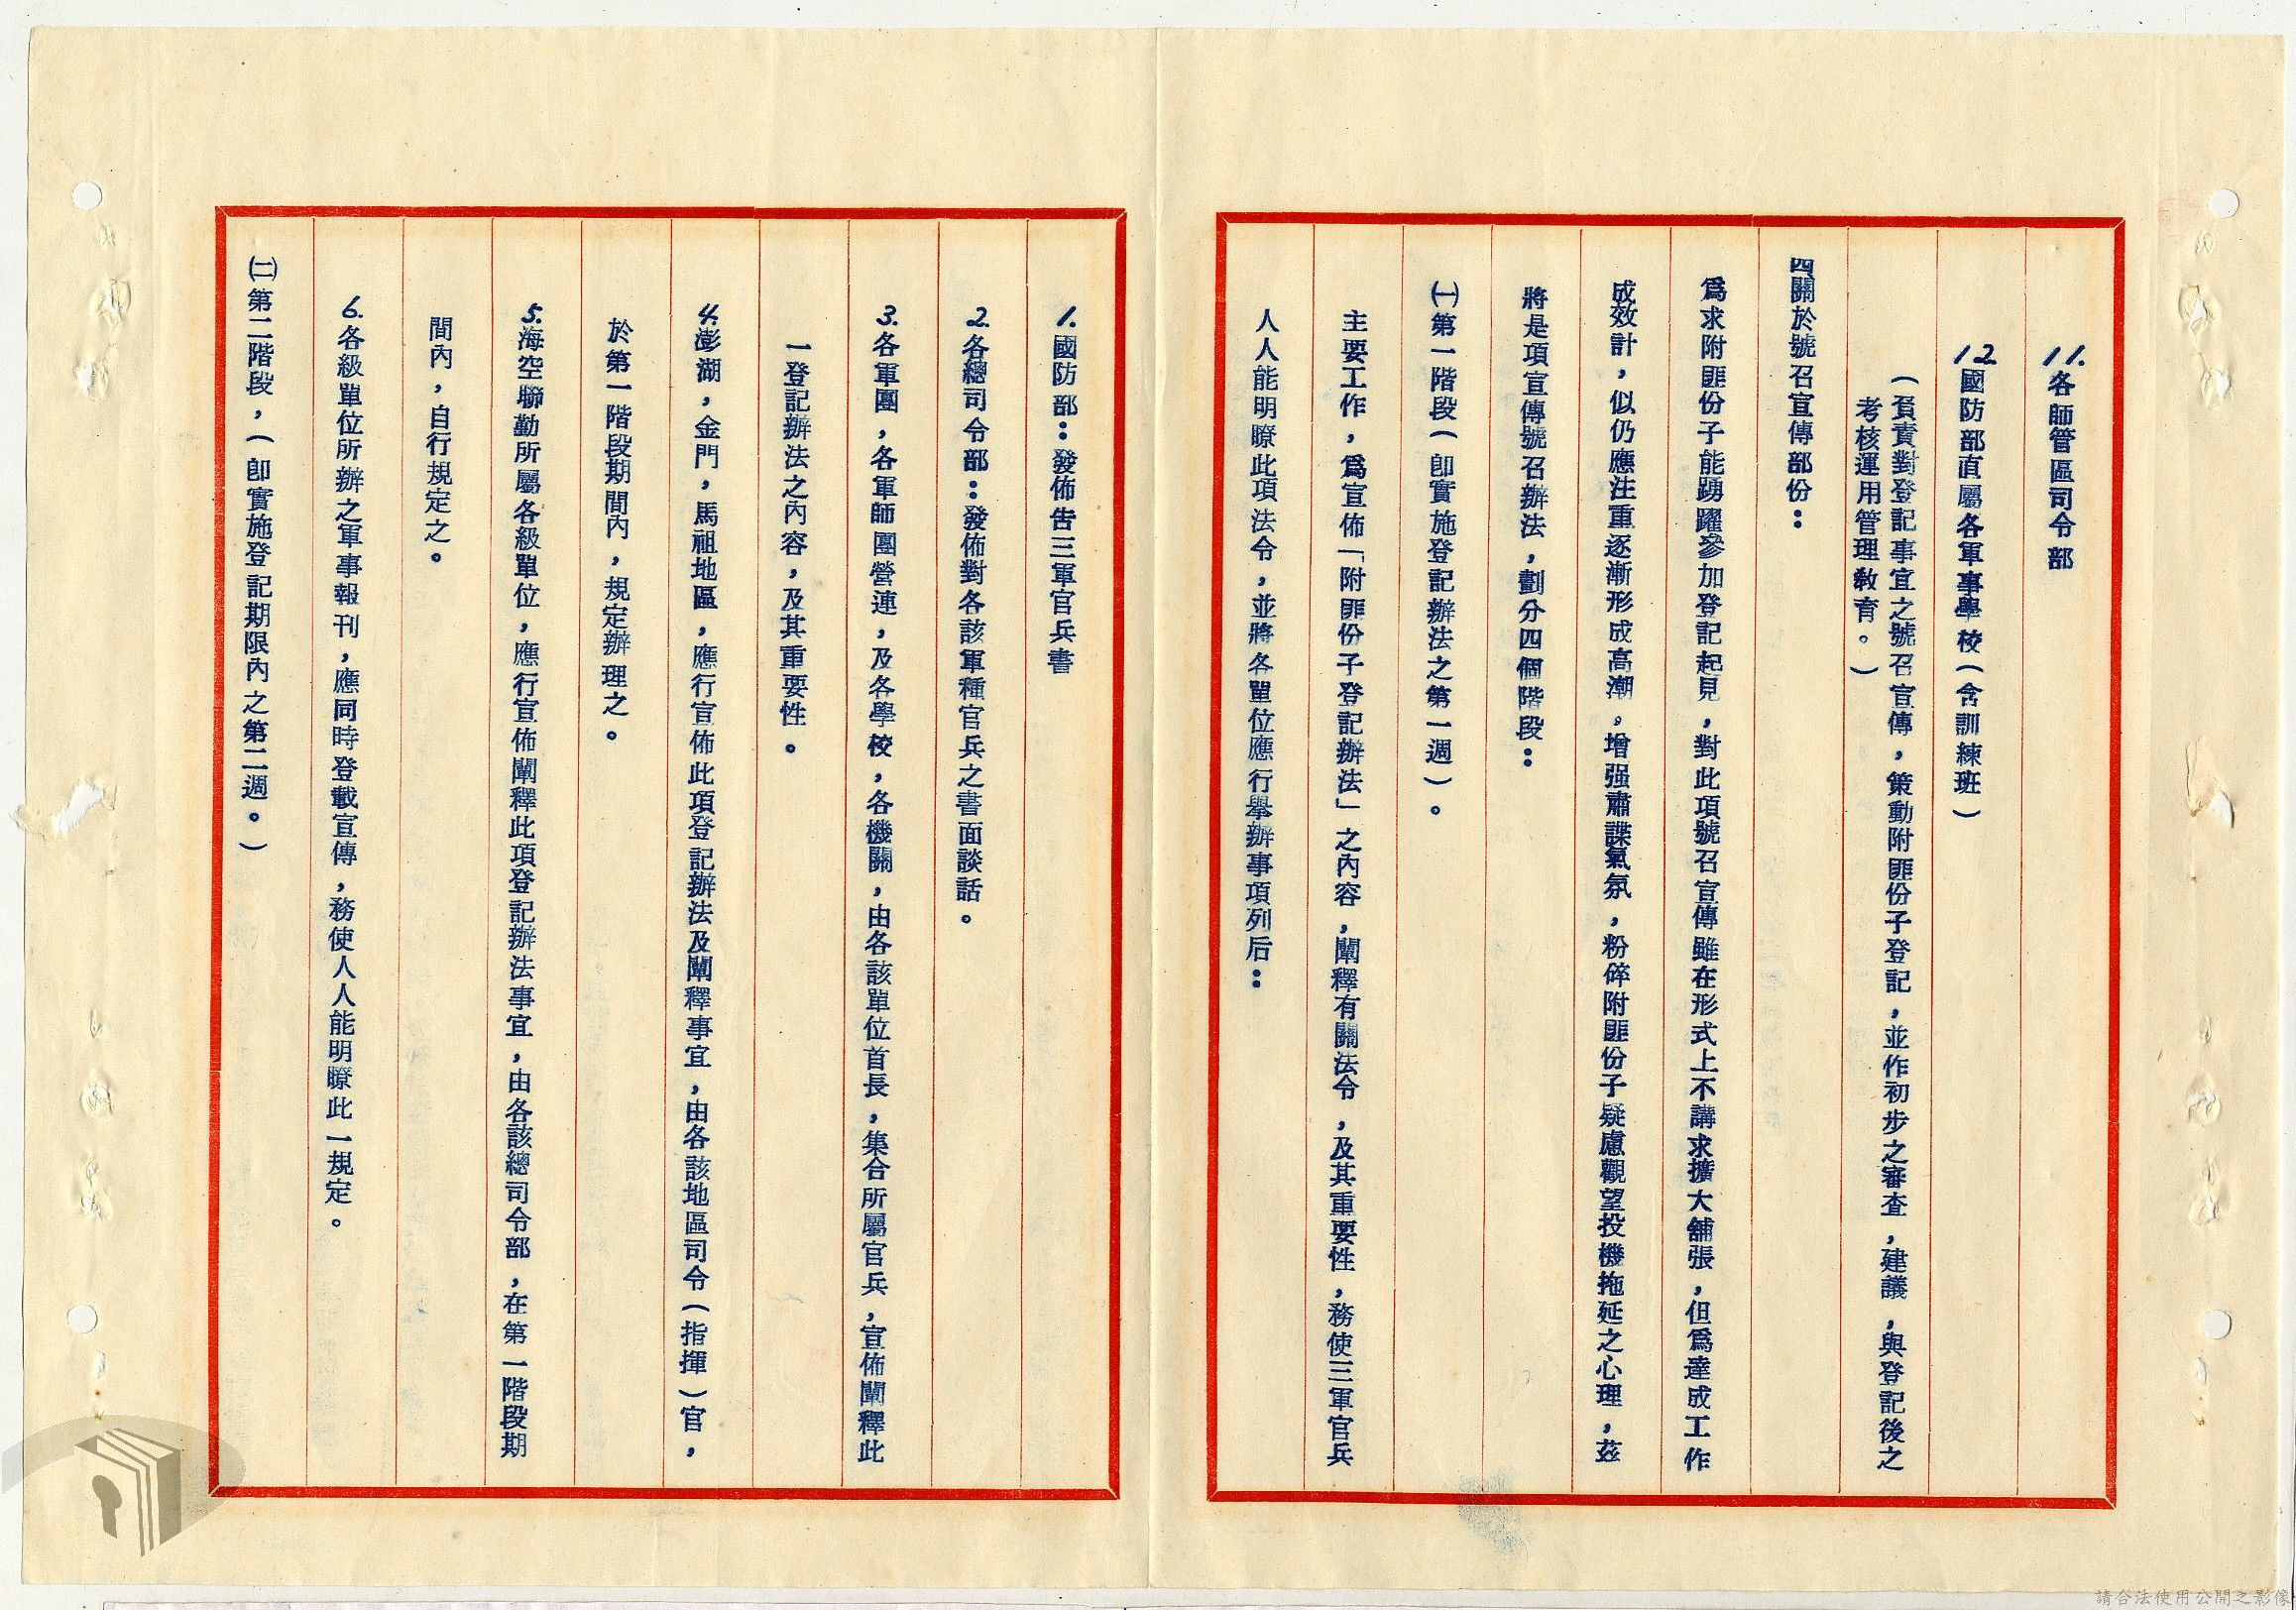 11.各師管區司令部
12國防部直屬各軍事學校(含訓練班)
(負責對登記事宜之號召宣傳,策動附匪份子登記,並作初步之審查,建議,與登記後之
考核運用管理教育。)
四關於號召宣傳部份:
爲求附匪份子能踴躍參加登記起見,對此項號召宣傳雖在形式上不講求擴大舖張,但爲達成工作
成效計,似仍應注重逐漸形成高潮。增强肅諜氣氛,粉碎附匪份子疑慮觀望投機拖延之心理,茲
將是項宣傳號召辦法,劃分四個階段:
㈠第一階段(卽實施登記辦法之第一週)。
主要工作,爲宣佈「附匪份子登記辦法」之內容,闡釋有關法令,及其重要性,務使三軍官兵
人人能明瞭此項法令,並將各單位應行舉辦事項列后:
1.國防部:發佈告三軍官兵書
2.各總司令部:發佈對各該軍種官兵之書面談話。
3.各軍團,各軍師團營連,及各學校,各機關,由各該單位首長,集合所屬官兵,宣佈闡釋此
一登記辦法之內容,及其重要性。
4.澎湖,金門,馬祖地區,應行宣佈此項登記辦法及闡釋事宜,由各該地區司令(指揮)官,
於第一階段期間內,規定辦理之。
5.海空聯勤所屬各級單位,應行宣佈闡釋此項登記辦法事宜,由各該總司令部,在第一階段期
間內,自行規定之。
6.各級單位所辦之軍事報刊,應同時登載宣傳,務使人人能明瞭此一規定。
㈡第二階段,(卽實施登記期限內之第二週。)
請合法使用公開之影像